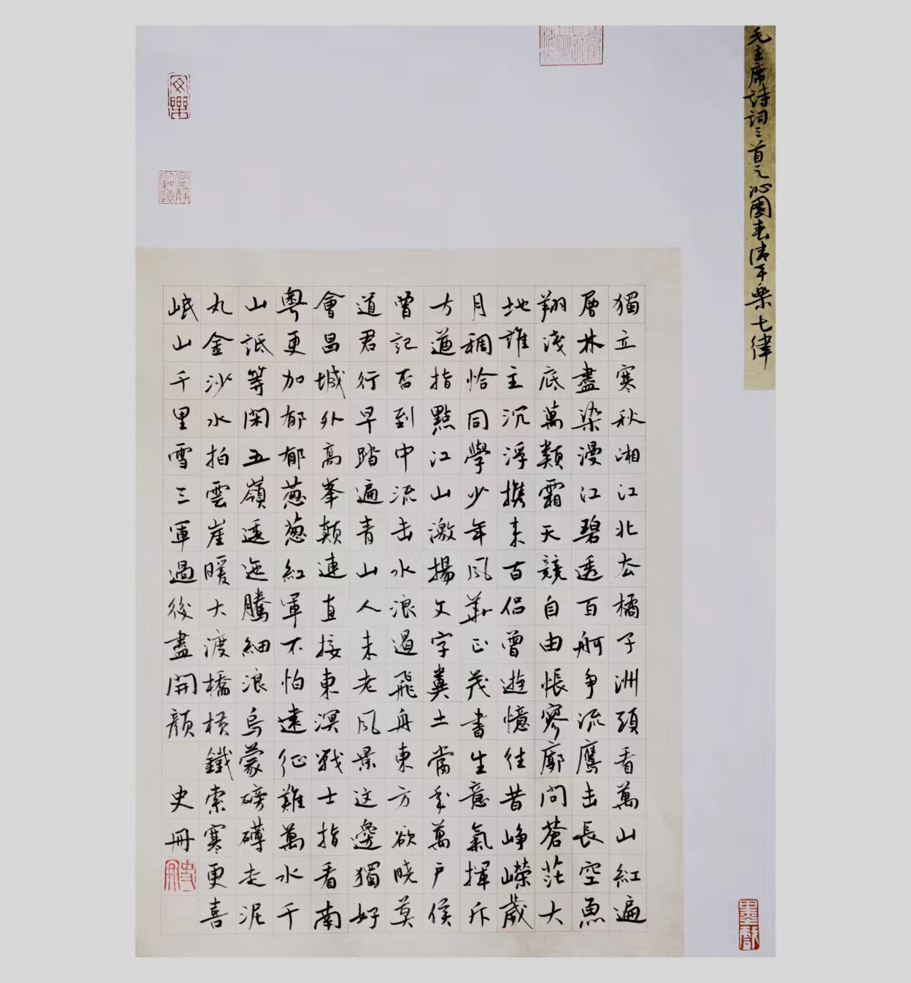 毛主席詩詞三首之沁園春清平樂七律
獨立寒秋湘江北去橘子洲頭看萬山紅遍
層林盡染漫江碧透百舸爭流鷹击長空魚
翔淺底萬類霜天競自由悵寥廓問蒼茫大
地誰主沉浮携来百侣曾遊憶往昔崢嶸歲
月稠恰同學少年风華正茂書生意氣揮斥
方遒指點江山激揚文字糞土當年萬戶侯
曾記否到中流击水浪遏飛舟東方欲曉莫
道君行早踏遍青山人未老风景这邊獨好
會昌城外高峯顛連直接東溟戰士指看南
粵更加郁郁葱葱紅軍不怕遠征難萬水千
山祗等閑五嶺逶迤騰細浪烏蒙磅礴走泥
丸金沙水拍雲崖暖大渡橋橫鐵索寒更喜
岷山千里雪三軍過後盡開顏
史冊
史冊
安樂
墨戲